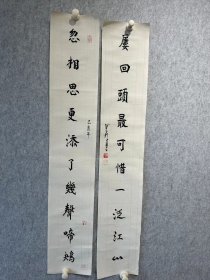 屢回頭最可惜一江山
己亥年
忽相思更添了幾聲啼鴂